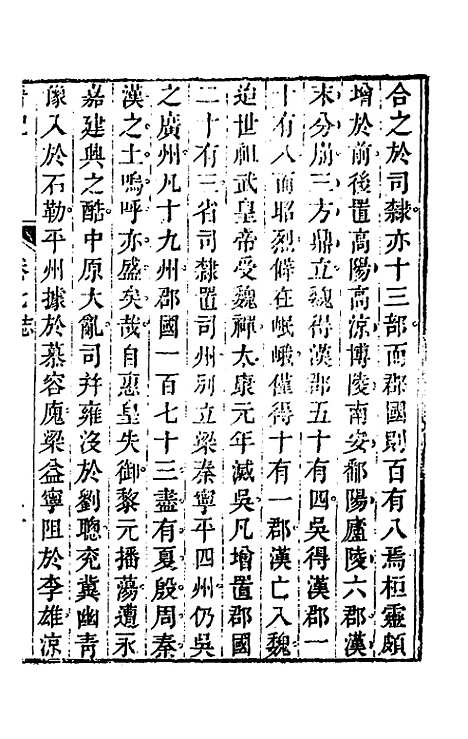 合之於司隸亦十三部而郡國則百有八焉桓靈頗
增於前後置高陽高涼博陵南安鄱陽廬陵六郡漢
末分崩三方鼎立魏得漢郡五十有四吳得漢郡一
十有八而昭烈僻在岷峨僅得十有一郡漢亡入魏
迨世祖武皇帝受魏禪太康元年滅吳凡增置郡國
二十有三省司隸置司州別立梁秦寧平四州仍吳
之廣州凡十九州郡國一百七十三盡有夏殷周秦
漢之土嗚呼亦盛矣哉自惠皇失御黎元播蕩遭永
嘉建興之酷中原大亂司幷雍沒於劉聰兖冀幽青
豫入於石勒平州據於慕容廆梁益寧阻於李雄涼
卷七 志